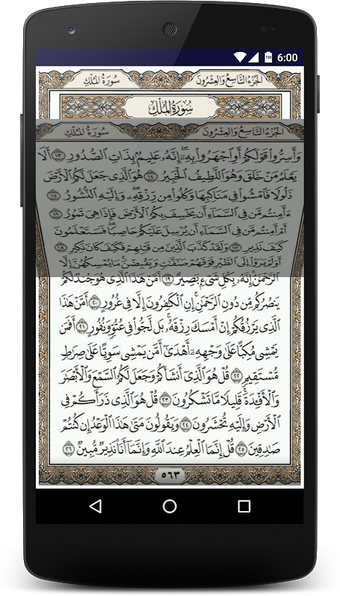 6:00
الجُزْءُ التَّاسِعُ وَالعِشْرُونَ سُورَةُ المُلْكِ
سُورَةُ المُلْكِ
الجُزْءُ التَّاسِعُ وَالعِشْرُونَ سُورَةُ المُلْكِ
وَأَسِرُّوا۟ قَوْلَكُمْ أَوِ ٱجْهَرُوا۟ بِهِۦٓ إِنَّهُۥ عَلِيمٌۢ بِذَاتِ ٱلصُّدُورِ ١٣ أَلَا
يَعْلَمُ مَنْ خَلَقَ وَهُوَ ٱللَّطِيفُ ٱلْخَبِيرُ ١٤ هُوَ ٱلَّذِى جَعَلَ لَكُمُ ٱلْأَرْضَ
ذَلُولًا فَٱمْشُوا۟ فِى مَنَاكِبِهَا وَكُلُوا۟ مِن رِّزْقِهِۦ وَإِلَيْهِ ٱلنُّشُورُ ١٥
ءَأَمِنتُم مَّن فِى ٱلسَّمَآءِ أَن يَخْسِفَ بِكُمُ ٱلْأَرْضَ فَإِذَا هِىَ تَمُورُ ١٦
أَمْ أَمِنتُم مَّن فِى ٱلسَّمَآءِ أَن يُرْسِلَ عَلَيْكُمْ حَاصِبًا فَسَتَعْلَمُونَ
كَيْفَ نَذِيرِ ١٧ وَلَقَدْ كَذَّبَ ٱلَّذِينَ مِن قَبْلِهِمْ فَكَيْفَ كَانَ نَكِيرِ ١٨
أَوَلَمْ يَرَوْا۟ إِلَى ٱلطَّيْرِ فَوْقَهُمْ صَٰٓفَّٰتٍ وَيَقْبِضْنَ مَا يُمْسِكُهُنَّ إِلَّا
ٱلرَّحْمَٰنُ إِنَّهُۥ بِكُلِّ شَىْءٍۭ بَصِيرٌ ١٩ أَمَّنْ هَٰذَا ٱلَّذِى هُوَ جُندٌ لَّكُمْ
يَنصُرُكُم مِّن دُونِ ٱلرَّحْمَٰنِ إِنِ ٱلْكَٰفِرُونَ إِلَّا فِى غُرُورٍ ٢٠ أَمَّنْ هَٰذَا
ٱلَّذِى يَرْزُقُكُمْ إِنْ أَمْسَكَ رِزْقَهُۥ بَل لَّجُّوا۟ فِى عُتُوٍّ وَنُفُورٍ ٢١ أَفَمَن
يَمْشِى مُكِبًّا عَلَىٰ وَجْهِهِۦٓ أَهْدَىٰٓ أَمَّن يَمْشِى سَوِيًّا عَلَىٰ صِرَٰطٍ
مُّسْتَقِيمٍ ٢٢ قُلْ هُوَ ٱلَّذِىٓ أَنشَأَكُمْ وَجَعَلَ لَكُمُ ٱلسَّمْعَ وَٱلْأَبْصَٰرَ
وَٱلْأَفْـِٔدَةَ قَلِيلًا مَّا تَشْكُرُونَ ٢٣ قُلْ هُوَ ٱلَّذِى ذَرَأَكُمْ فِى
ٱلْأَرْضِ وَإِلَيْهِ تُحْشَرُونَ ٢٤ وَيَقُولُونَ مَتَىٰ هَٰذَا ٱلْوَعْدُ إِن كُنتُمْ
صَٰدِقِينَ ٢٥ قُلْ إِنَّمَا ٱلْعِلْمُ عِندَ ٱللَّهِ وَإِنَّمَآ أَنَا۠ نَذِيرٌ مُّبِينٌ ٢٦
٥٦٣